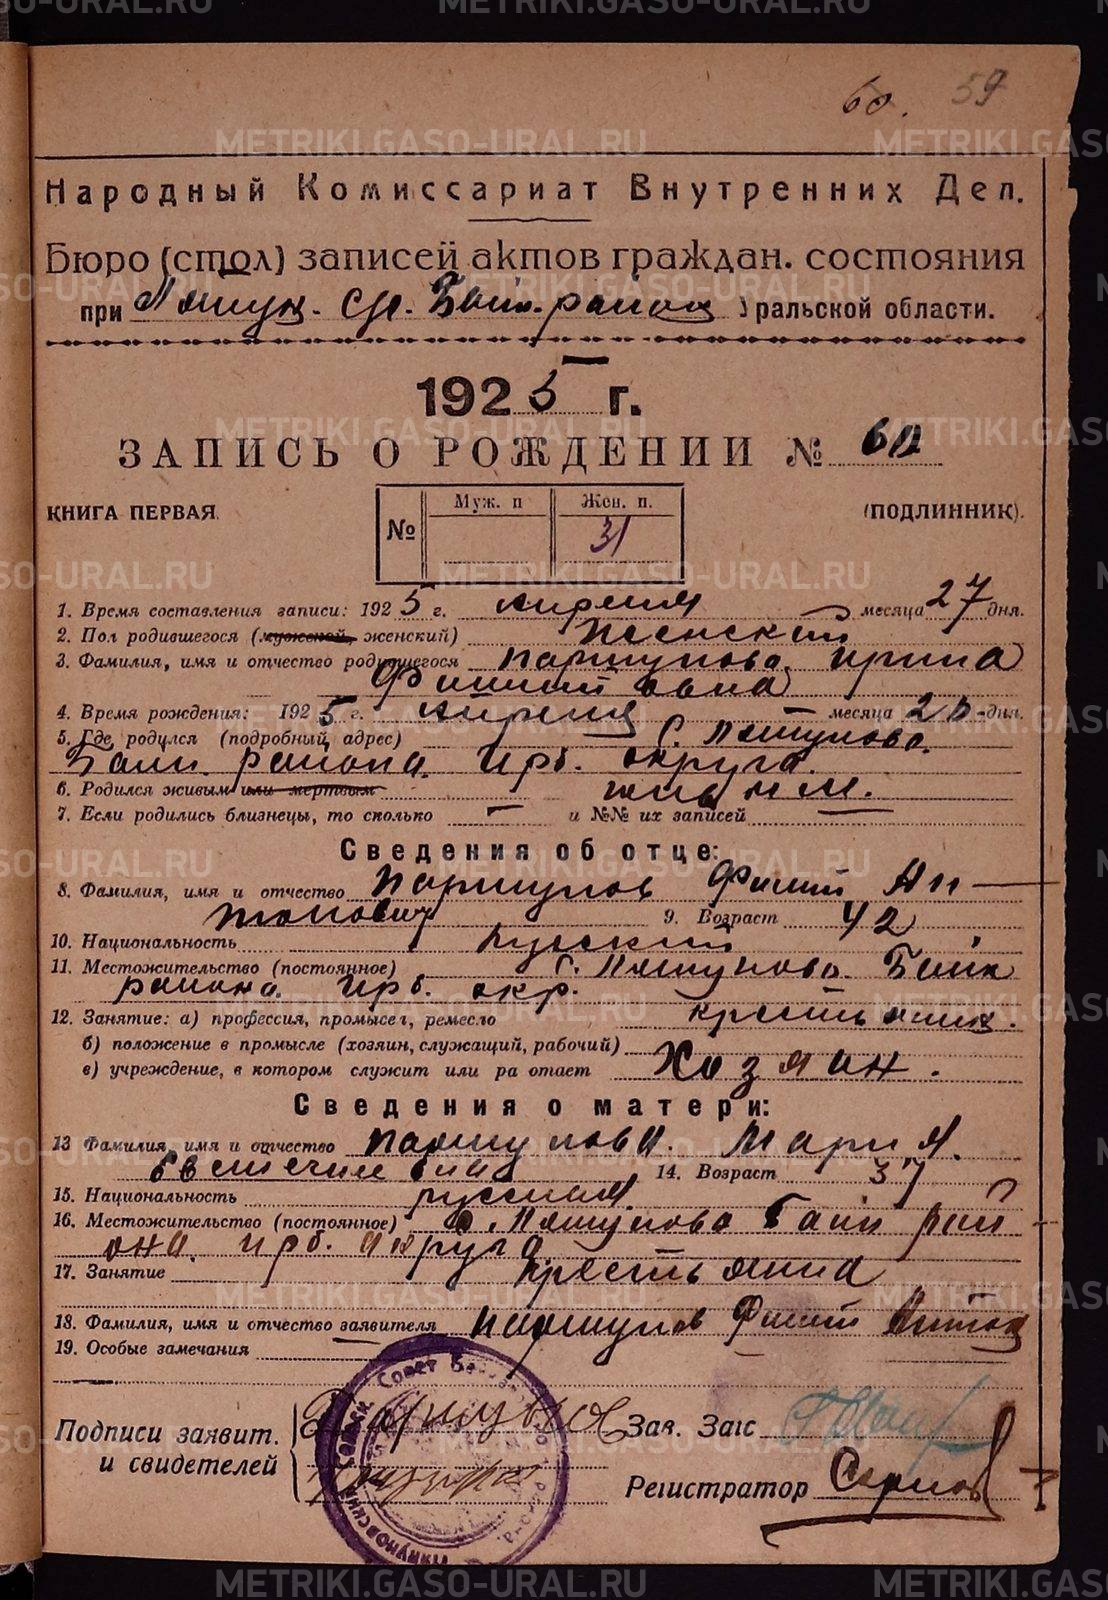 60. 59
Народный Комиссариат Внутренних Дел.
Бюро (стол) записей актов граждан. состояния
при Ляпун. с/с. Байк. района Уральской области.
1925 г.
ЗАПИСЬ О РОЖДЕНИИ № 60
КНИГА ПЕРВАЯ. (ПОДЛИННИК).
№ Муж. п Жен. п.
31
1. Время составления записи: 1925 г. апреля месяца 27 дня.
2. Пол родившегося (мужской, женский) женский
3. Фамилия, имя и отчество родившегося Паршукова Ирина
4. Время рождения: 1925 г. апреля месяца 26 дня.
5. Где родился (подробный адрес) с. Ляпуново
Байк. района Ирб. округа.
6. Родился живым или мертвым живым.
7. Если родились близнецы, то сколько — и №№ их записей
Сведения об отце:
8. Фамилия, имя и отчество Паршуков Ан
тонович 9. Возраст 42
10. Национальность русский
11. Местожительство (постоянное) с. Ляпуново Байк
района Ирб. окр.
12. Занятие: а) профессия, промысел, ремесло крестьянин.
б) положение в промысле (хозяин, служащий, рабочий)
в) учреждение, в котором служит или ра отает Хозяин.
Сведения о матери:
13 Фамилия, имя и отчество Паршукова Мария
14. Возраст 37
15. Национальность русская
16. Местожительство (постоянное) с. Ляпуново Байк рай
она Ирб. округа
17. Занятие крестьянка
18. Фамилия, имя и отчество заявителя Паршуков Антон
19. Особые замечания —
Подписи заявит. Паршуков Зав. Загс
и свидетелей
Регистратор
METRIKI.GASO-URAL.RU